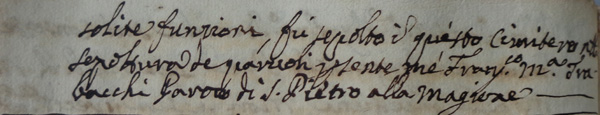 solite funzioni, fù sepolto ī questo Cimitero nel
sepoltura de parvoli psente mé Fran.co M.a Tra
bacchi Paroco di S. Pietro alla Magione